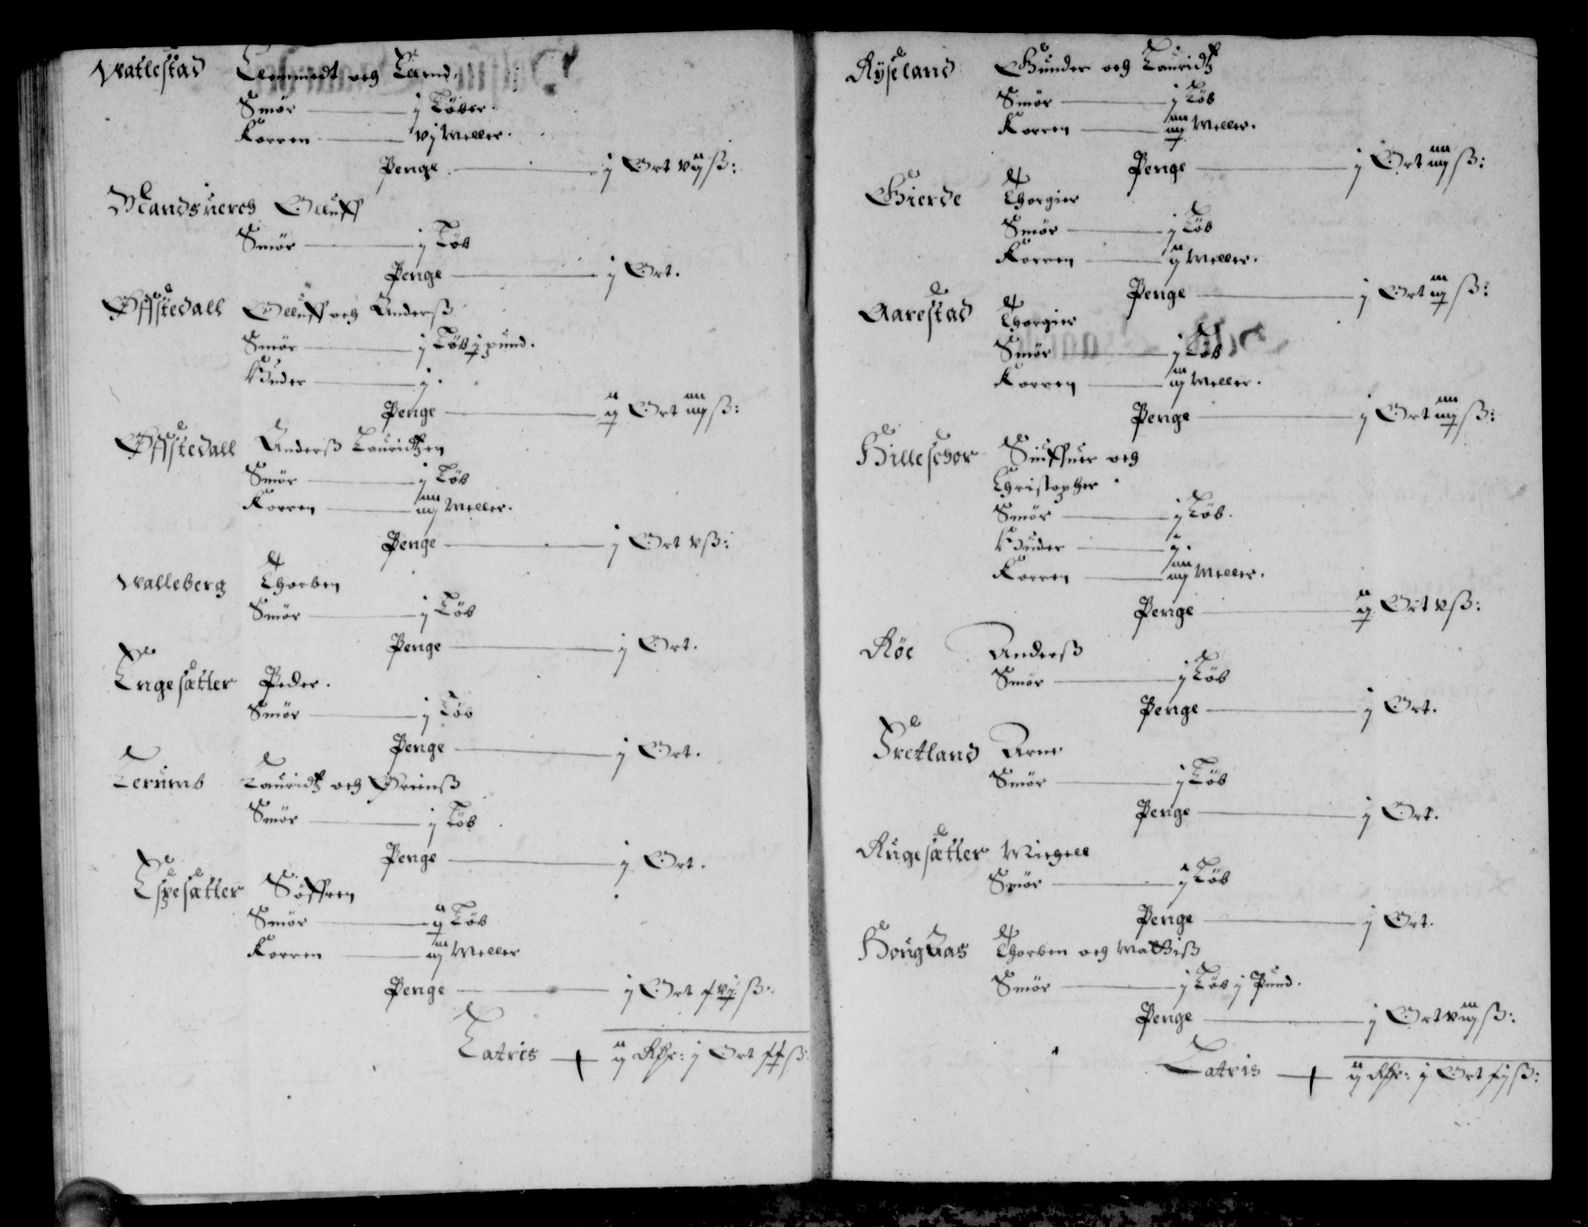 Vatlestad Clemmedt och Lamd.
Smör j Löber.
Korren vj Meller.
Penge j Ort vij ß:
Mandsuerch Oluff
Smör j Löb
Penge j Ort.
Øffstedall Olluff och Anderß
Smör j Löb j pund.
Huder j.
Penge ij Ort iiij ß:
Øffstedall Anderß Lauridtzen
Smör j Löb
Korren iiij Meller.
Penge j Ort v ß:
Valleberg Thorben
Smör j Löb
Penge j Ort.
Engesætter Peder.
Smör j Löb
Penge j Ort.
Lerumb Lauridtz och
Smör j Löb
Penge j Ort.
Espesætter Söffren
Smör ij Löb
Korren iij Meller
Penge j Ort xvj ß:
Lateris ij Rdr: j Ort xx ß:
Ryseland Gunder och Lauridtz
Smör j Löb
Korren iiij Meller.
Penge j Ort iiij ß:
Gierde Thorgier
Smör j Löb
Korren ij Meller.
Penge j Ort iij ß:
Aarestad Thorgier
Smör j Löb
Korren iij Meller.
Penge j Ort iiij ß:
Hilleschor Siuffuer och
Christopher
Smör j Löb.
Huder j.
Korren iiij Meller.
Penge ij Ort v ß:
Röe Anderß
Smör j Löb
Penge j Ort.
Fretland Arne
Smör j Löb
Penge j Ort.
Rugesætter Michgell
Smör j Löb
Penge j Ort.
Hougaas Thorben och Mattiß
Smör j Löb j Pund.
Penge j Ort viij ß:
Lateris ij Rdr: j Ort xj ß: